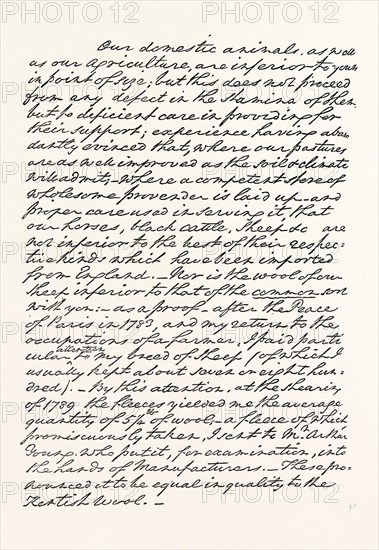 Our domestic animals, as well
as our agriculture, are inferior to yours
in point of size; but this does not proceed
from any defect in the stamina of them,
but to deficient care in providing for
their support; experience having abun
dantly evinced that, where our pastures
are as well improved as the soil & climate
will admit,- where a competent store of
wholesome provender is laid up and
proper care used in serving it, that
our horses, black cattle, Sheep &c are
not inferior to the best of their respec-
tive kinds which have been imported
from England.- Nor is the wool of our
Sheep inferior to that of the common sort
with you:- as a proof- after the Peace
of Paris in 1783, and my return to the
occupations of a farmer, I paid parti
cular attention to my breed of Sheep (of which I
usually kept about seven or eight hun-
dred).- By this attention, at the shearing
of 1789, the fleeces yielded me the average
quantity of 5¼ lb of wool;- a fleece of which
promiscuously taken, I sent to Mr. Arthur
Young, who put it, for examination, into
the hands of Manufacturers.- These pro-
nounced it to be equal in quality to the
Kentish Wool.-
PHOTO12